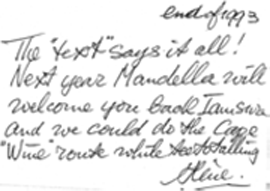 end of 1993
The "text" says it all!
Next year Mandella will
welcome you back I am sure
and we could do the Cape
"Wine" route while teetotalling